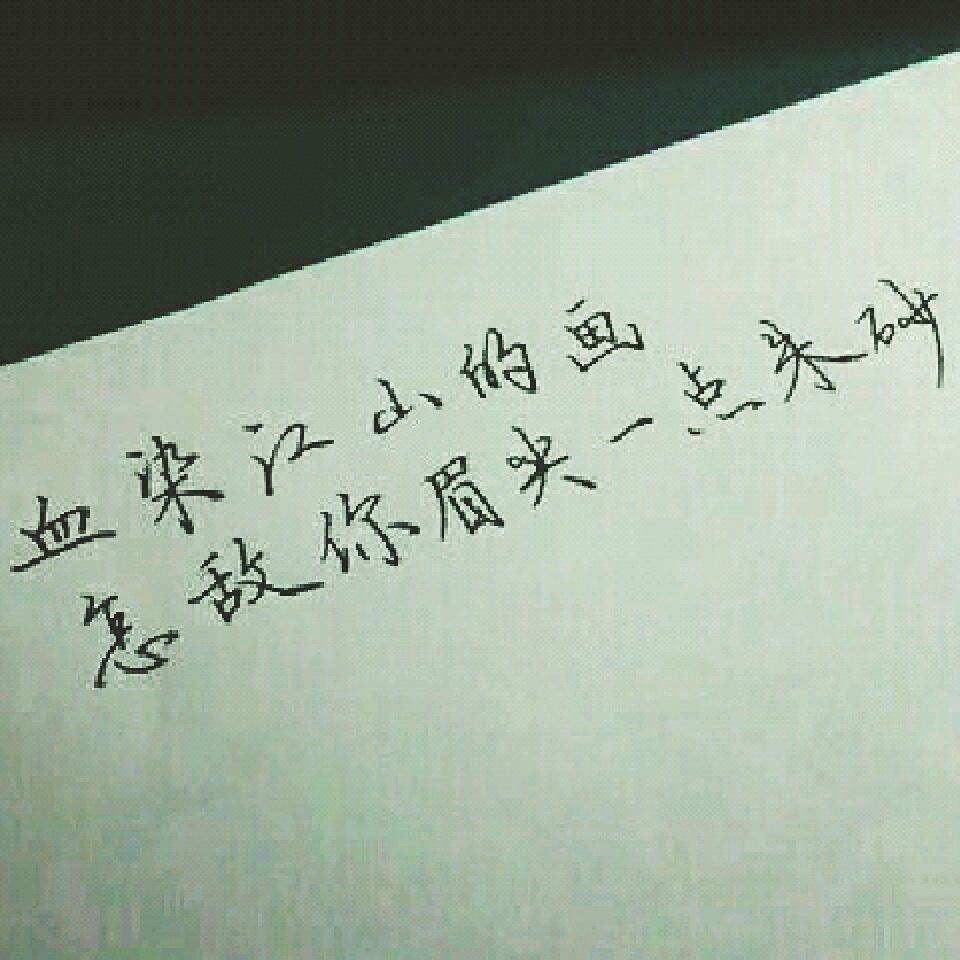 血染江山的画
怎敌你眉头一点朱砂